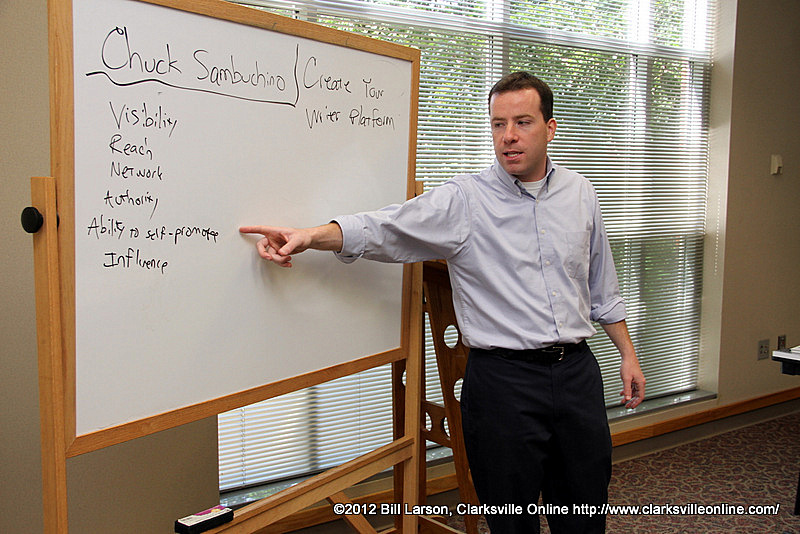 Chuck Sambuchino
Create Your
Writer Platform
Visibility
Reach
Network
Authority
Ability to self-promote
Influence
©2012 Bill Larson, Clarksville Online http://www.clarksvilleonline.com/